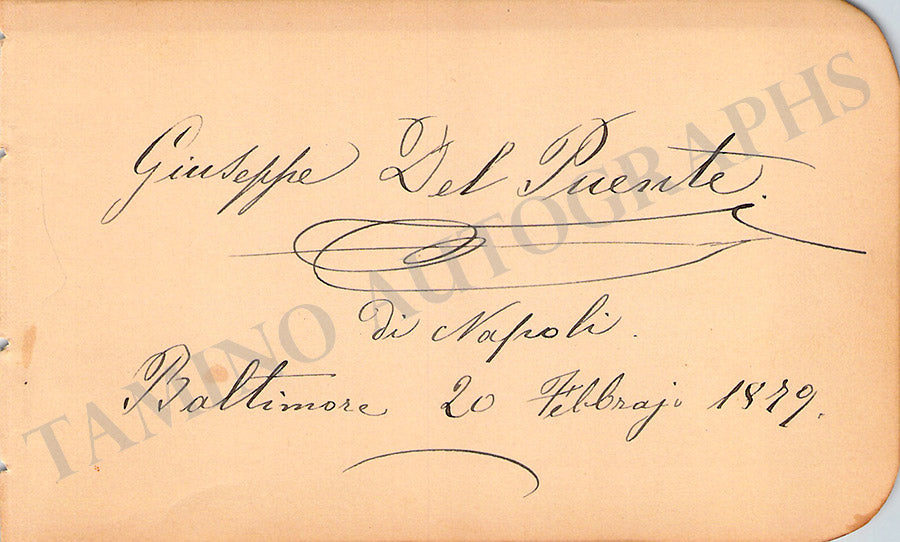 Giuseppe Del Puente.
di Napoli.
Baltimore 20 Febbrajo 1879.
TAMINO AUTOGRAPHS